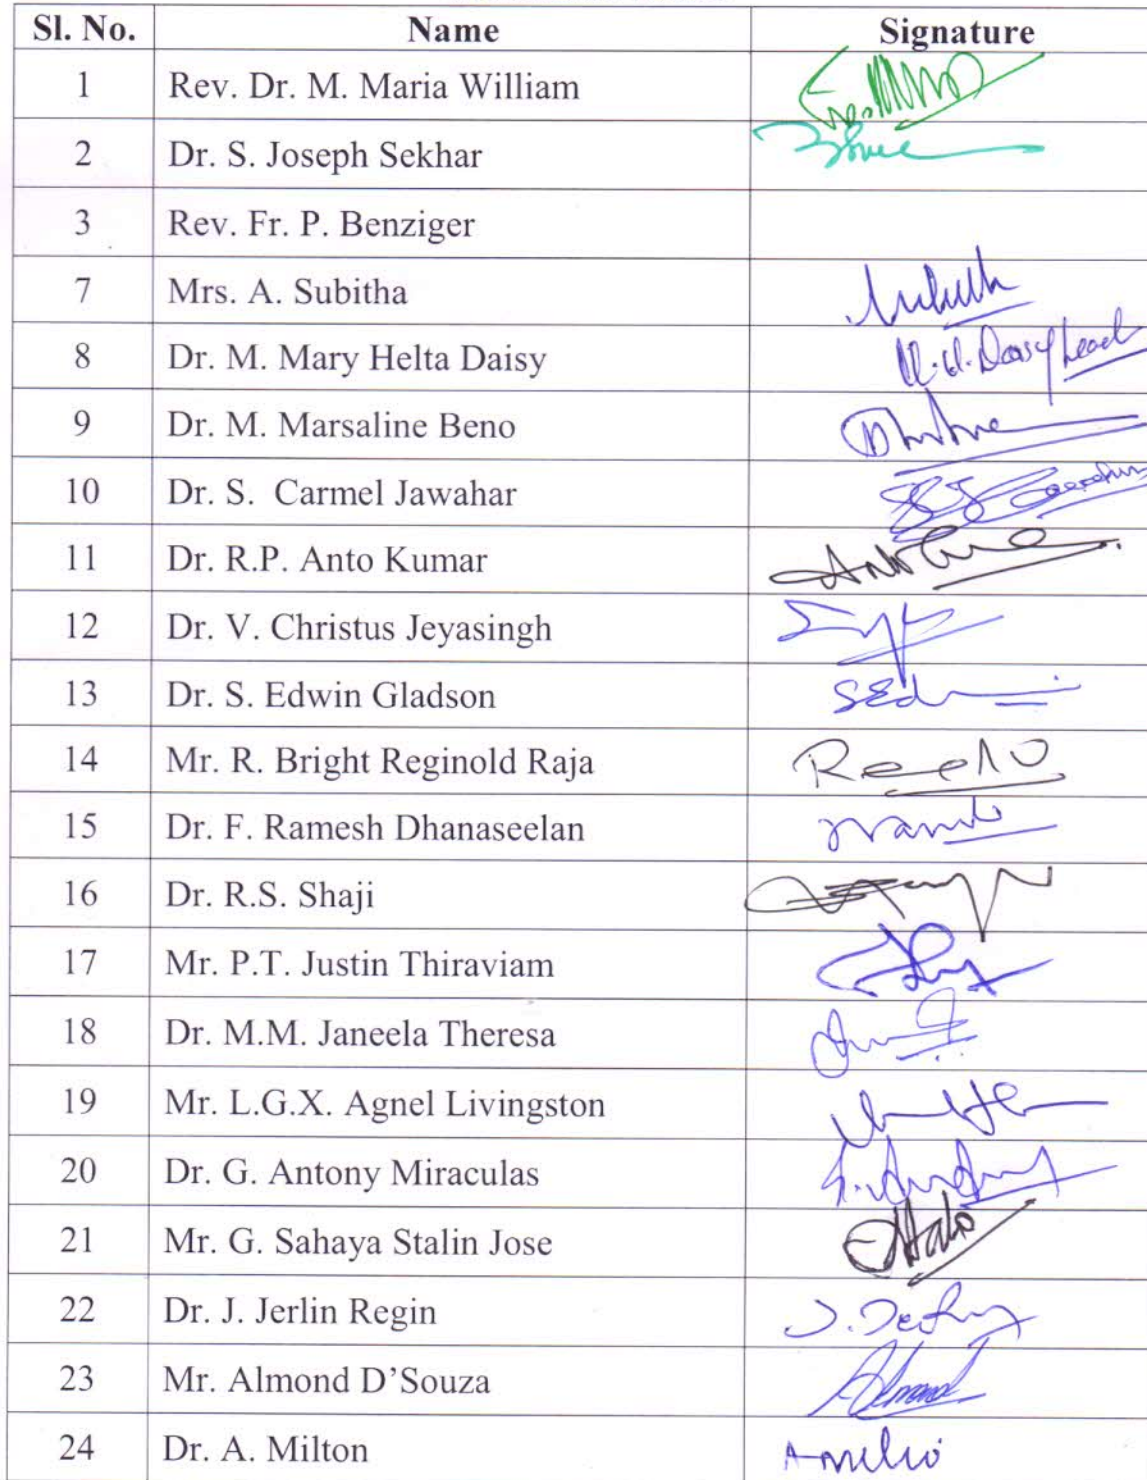 Sl. No. Name Signature
1 Rev. Dr. M. Maria William
2 Dr. S. Joseph Sekhar
3 Rev. Fr. P. Benziger
7 Mrs. A. Subitha
8 Dr. M. Mary Helta Daisy
9 Dr. M. Marsaline Beno
10 Dr. S. Carmel Jawahar
11 Dr. R.P. Anto Kumar
12 Dr. V. Christus Jeyasingh
13 Dr. S. Edwin Gladson
14 Mr. R. Bright Reginold Raja
15 Dr. F. Ramesh Dhanaseelan
16 Dr. R.S. Shaji
17 Mr. P.T. Justin Thiraviam
18 Dr. M.M. Janeela Theresa
19 Mr. L.G.X. Agnel Livingston
20 Dr. G. Antony Miraculas
21 Mr. G. Sahaya Stalin Jose
22 Dr. J. Jerlin Regin
23 Mr. Almond D'Souza
24 Dr. A. Milton